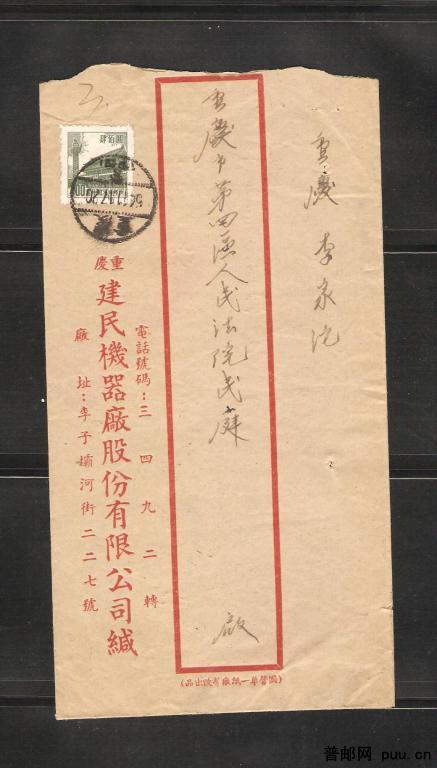 重慶 李家沱
重慶市第四區人民法院民庭
啟
肆佰圓
54.11.17.20
重慶
重慶
建民機器廠股份有限公司緘
電話號碼：三四九二轉
廠址：李子壩河街二二七號
普邮网 puu.cn